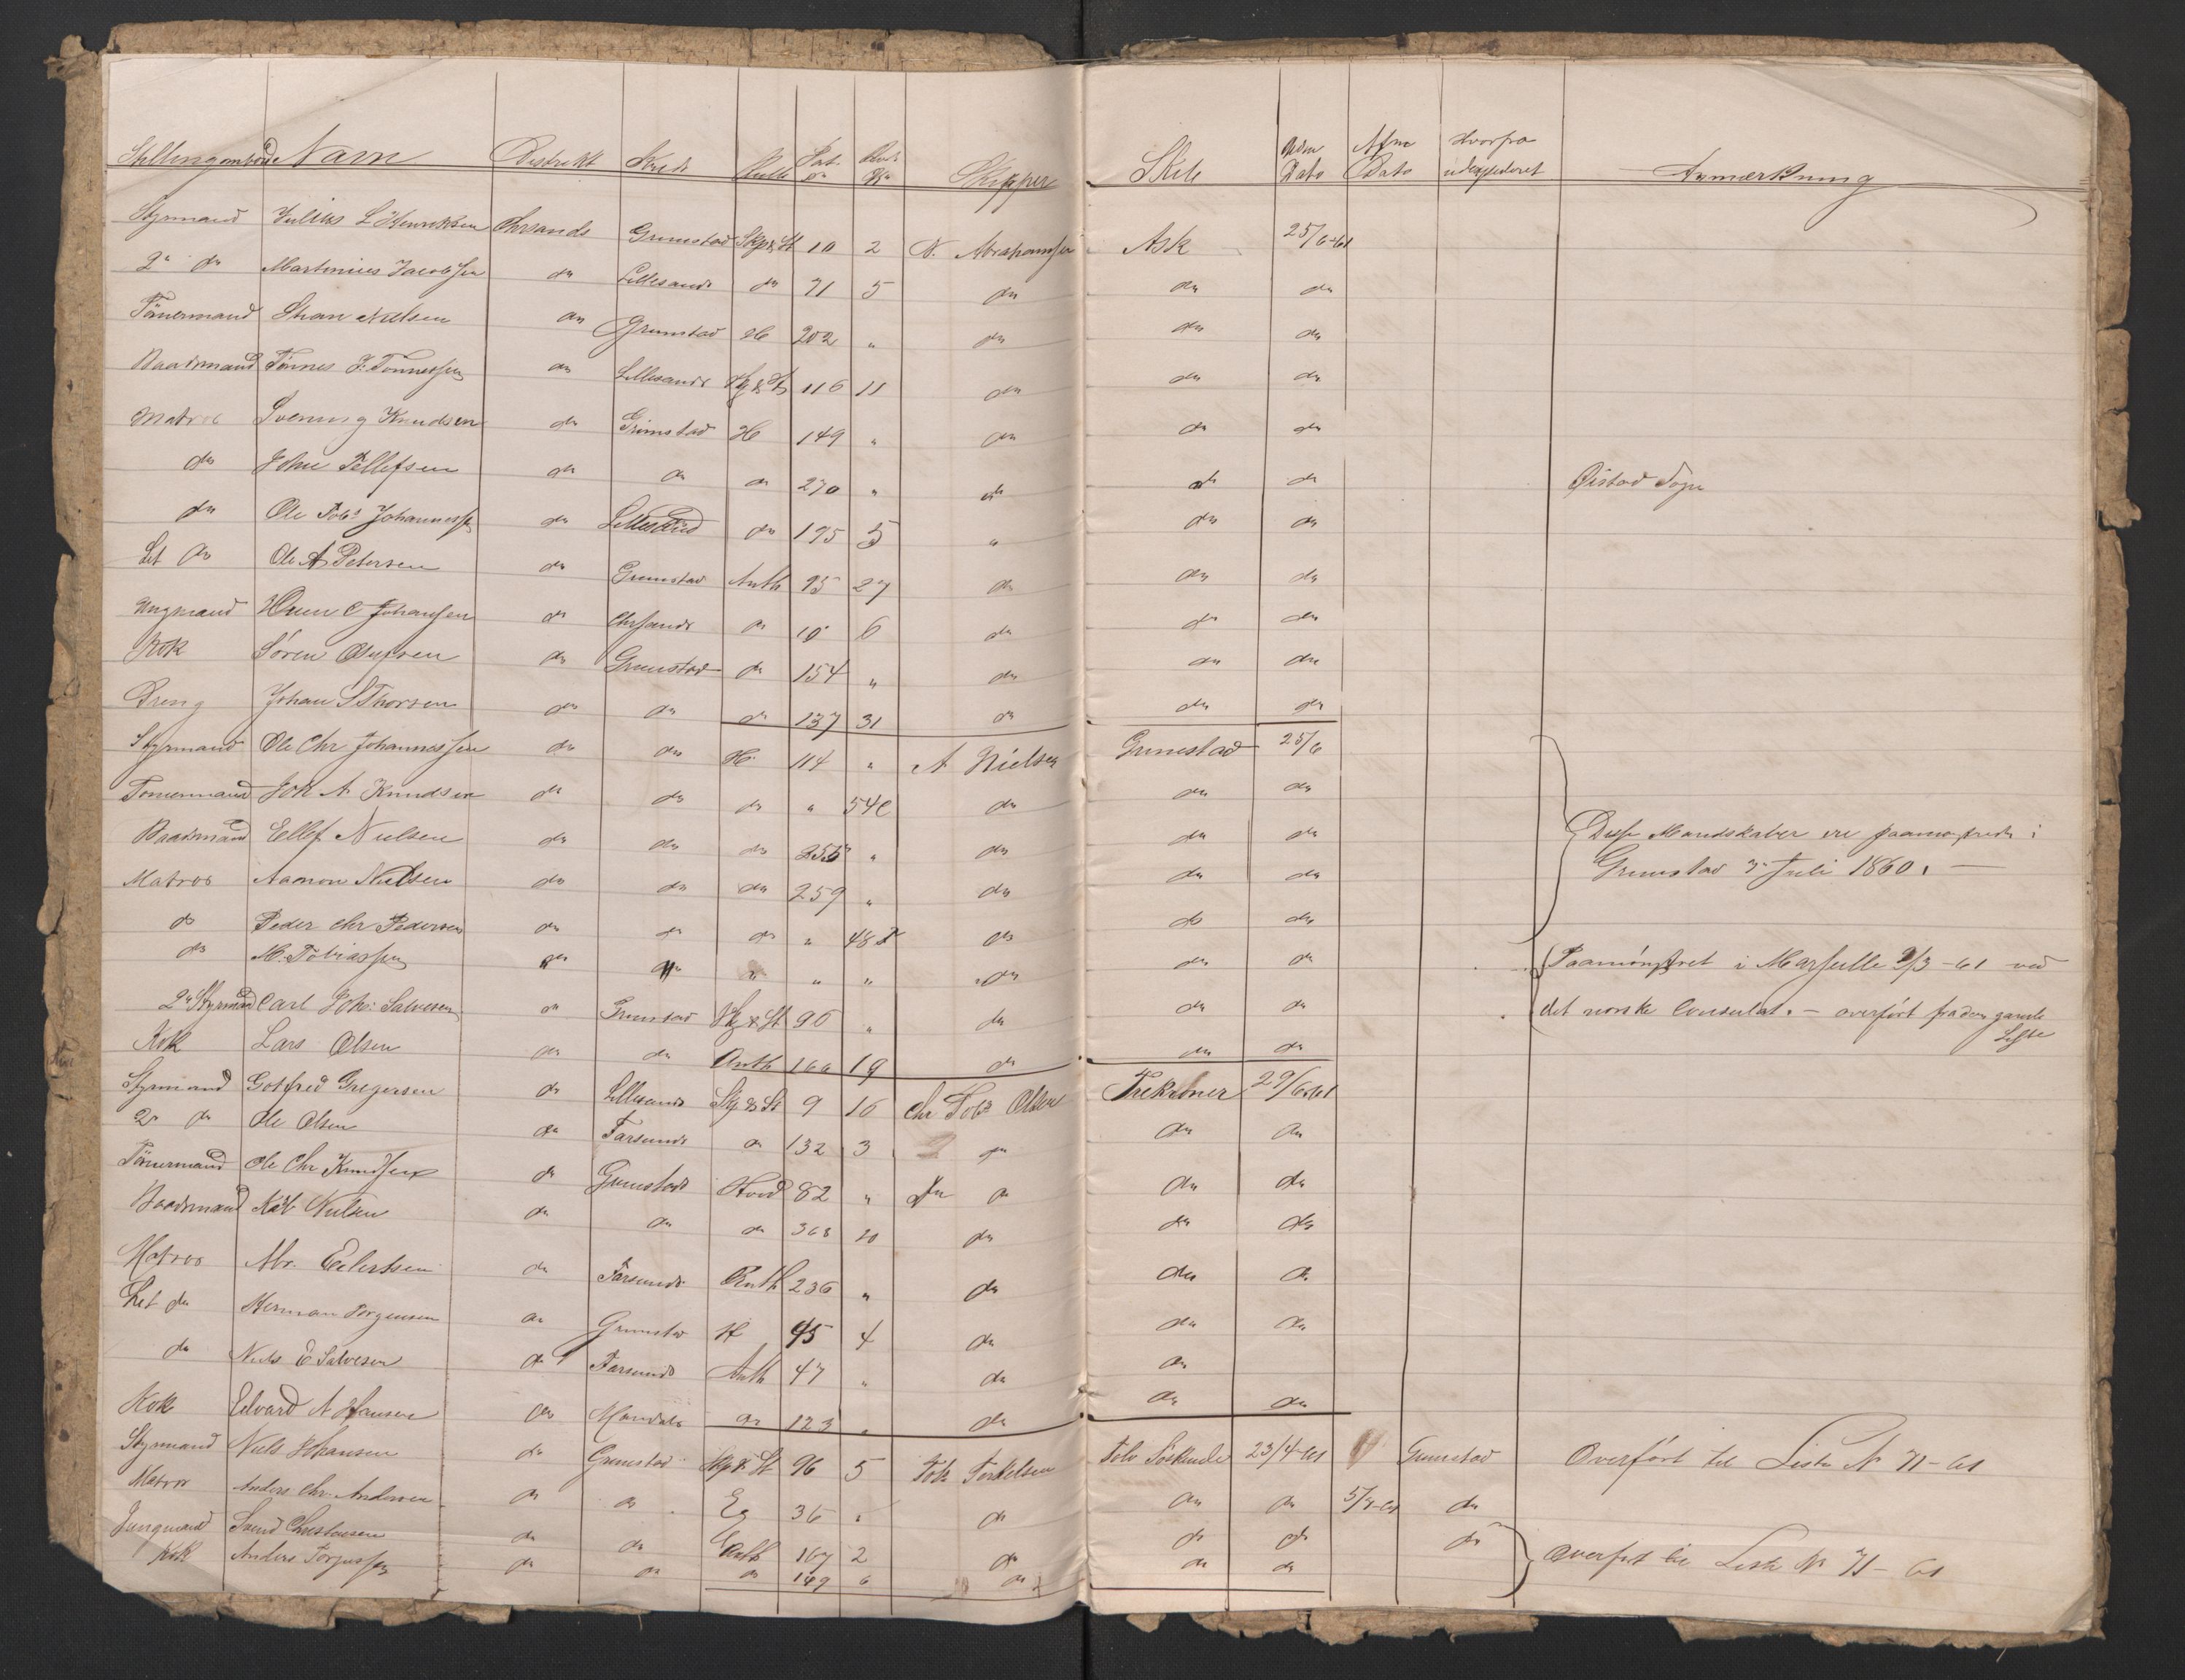 Stillingombord Navn Distrikt Kreds Rulle Pat. No Skipper Skib Dato Dato Hvorfra udexpederet Anmærkning
Styrmand Julius L Henriksen Chrsands Grimstad Skp & St 10 2 N. Abrahamsen Ask 25/6-61
2n do Martinius Jacobsen do Lillesands do 71 5 do do do
Tömermand Nielsen do Grimstad H 202 " do do do
Baadsmand Tönnes J. Tönnessen do Lillesands Sk & St 116 11 do do do
Matros Svenning Knudsen do Grimstad H 149 " do do do
do John Tellefsen do do do 270 " do do do Øistad Sogn
do Ole Tobs Johannessen do Lillesand do 195 5 " do do
Let do Ole A Petersen do Grimstad Anth 95 27 do do do
C Johansen do Chrsands do 10 6 do do do
Kok Sören Olufsen do Grimstad do 154 " do do do
Dreng Johan S Thorsen do do do 137 31 do do do
Styrmand Ole Chr Johannessen do do H. 114 " A Nielsen Grimstad 25/6
Tömermand Joh A. Knudsen do do do " 54 do do do
Baadsmand Ellef Nielsen do do do 255 " do do do Disse Mandskaber ere paamønstrede i
Matros Aamon Nielsen do do do 259 " do do do Grimstad 3 Juli 1860. —
do Peder Chr Pedersen do do do " 48 do do do
do M. Tobiassen do do " " " do do do Paamönstret i Marseille /3-61 ved
2n Styrmand Carl Joh: Salvesen do Grimstad Sk & St 90 " do do do det norske Consulat. — overfört fra den gamle Liste
Kok Lars Olsen do do Anth 19 do do do
Styrmand Gotfred Gregersen do Lillesands Skp & St 9 16 Chr Tobs Olsen Trekroner 29/6-61
2n do Ole Olsen do Farsunds do 132 3 do do do
Tömermand Ole Chr Knudsen do Grimstads Hoved 82 " do do do do
Baadsmand Nielsen do do do 368 20 do do do
Matros Abr. Eilertsen do Farsunds Anth 236 " do do do
Let do Herman Jorgensen do Grimstad H 95 4 do do do
do Niels E Salvesen do Farsunds Anth 47 " do do
Kok Edvard A Hansen do Mandals do 123 " do do do
Styrmand Niels Johansen do Grimstad Skp & St 96 5 Tob Terkelsen Tolv Söskende 23/4-61 Grimstad Overfört til Liste No 71-61
Matros Anders Chr. Andersen do do Eg 36 " do do do do
Jungmand Svend Christensen do do Anth 167 2 do do do do
Kok Anders Torjussen do do do 149 6 do do do Overfört til Liste No 71-61